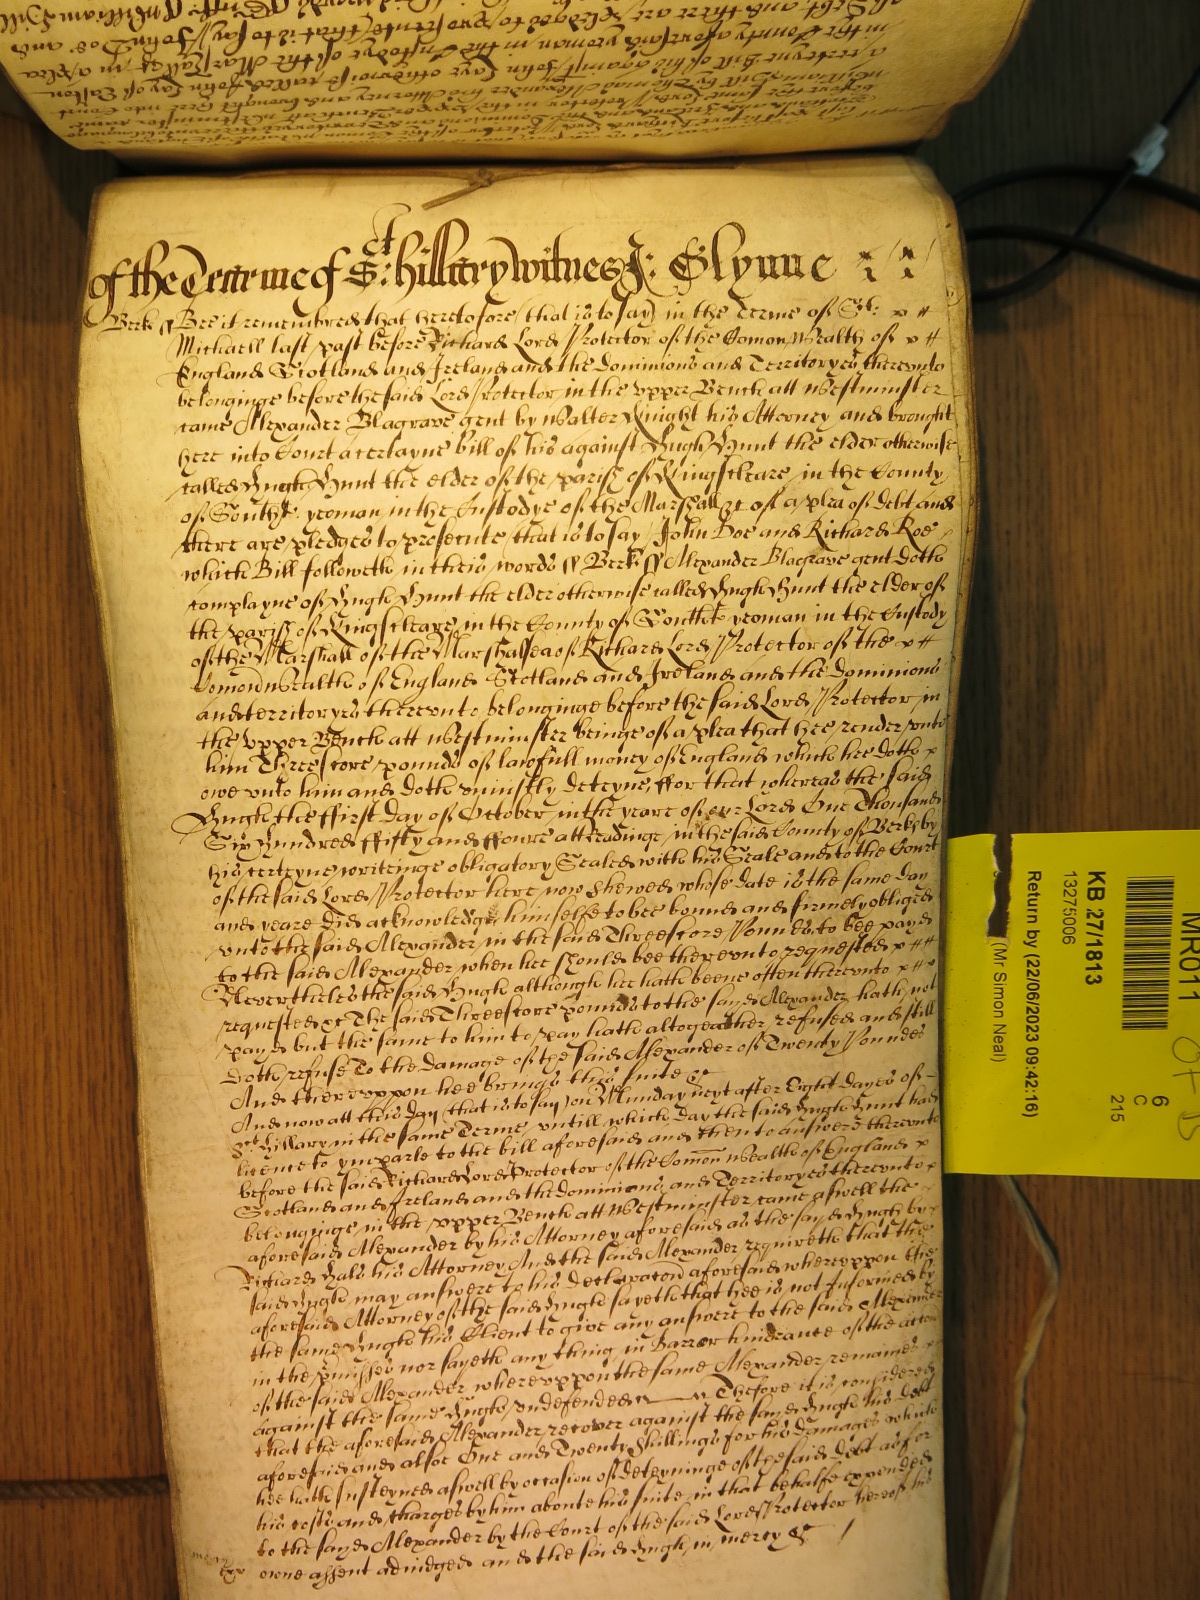 of the Terme of St: Hillary witnes J: Glynne
Berk ss Bee it remembred that heretofore (that is to say) in the Terme of St:
Michaell last past before Richard Lord Protector of the Comon Wealth of
England Scotland and Ireland and the Dominions and Territoryes thereunto
belonginge before the said Lord Protector in the vpper Bench att Westminster
came Alexander Blagrave gent by Walter Knight his Attorney and brought
here into Court a certayne bill of his against Hugh Hunt the elder otherwise
called Hugh Hunt the elder of the parish of Kingscleare in the County
of Southt. yeoman in the Custodye of the Marshall &c of a plea of debt and
there are pledges to prosecute (that is to say) John Doe and Richard Roe
which Bill followeth in theis words ss Berk ss Alexander Blagrave gent doth
complayne of Hugh Hunt the elder otherwise called Hugh Hunt the elder of
the parish of Kingscleare in the County of Southt yeoman in the Custody
of the Marshall of the Marshalsea of Richard Lord Protector of the
Comonwealth of England Scotland and Ireland and the Dominions
and territoryes thereunto belonginge before the said Lord Protector in
the vpper Bench att Westminster beinge of a plea that hee render vnto
him Threescore pounds of lawfull money of England which hee doth
owe vnto him and doth vniustly deteyne, ffor that whereas the said
Hugh the ffirst day of October in the yeare of our Lord One Thousand
Six Hundred ffifty and ffoure att Readinge in the said County of Berks by
his certeyne writeinge obligatory Sealed with his Seale and to the Court
of the said Lord Protector here now shewed whose date is the same day
and yeare did acknowledge himselfe to bee bound and firmely obliged
vnto the said Alexander in the said Threescore Pounds to bee payd
to the said Alexander when hee should bee therevnto requested
Neverthelesse the said Hugh although hee hath beene often therevnto
requested &c The said Threescore pounds to the sayd Alexander hath not
payd but the same to him to pay hath altogeather refused and still
doth refuse To the damage of the said Alexander of Twenty Poundes
And therevppon hee brings this suite &c
And now att this day (that is to say) on Munday next after Eight dayes of
St. Hillary in the same Terme vntill which day the said Hugh Hunt had
licence to ymparle to the bill aforesaid and then to answere therevnto
before the said Richard Lord Protector of the Comon Wealth of England
Scotland and Ireland and the dominions and Territoryes therevnto
belonginge in the vpper Bench att Westminster came aswell the
aforesaid Alexander by his Attorney aforesaid as the sayd Hugh by
Richard Hals his Attorney And the said Alexander requireth that the
said Hugh may answere to his declaracon aforesaid wherevppon the
aforesaid Attorney of the said Hugh sayeth that hee is not Informed by
the same Hugh his Client to give any answere to the said Alexander
in the p'misses nor sayeth any thing in Barr or hinderance of the accon
of the said Alexander wherevppon the same Alexander remaines
against the same Hugh vndefended &c Thefore it is considered
that the aforesaid Alexander recover against the sayd Hugh his debt
aforesaid and alsoe One and Twenty Shillings for his damages which
hee hath susteyned aswell by occasion of deteyninge of the said debt as for
his costs and charges by him aboute his suite in that behalfe expended
to the sayd Alexander by the Court of the said Lord Protector hereof his
owne assent adiudged and the said Hugh in mercy &c
MR011
6
C
215
KB 27/1813
13275006
Return by (22/06/2023 09:42:16)
(Mr Simon Neal)